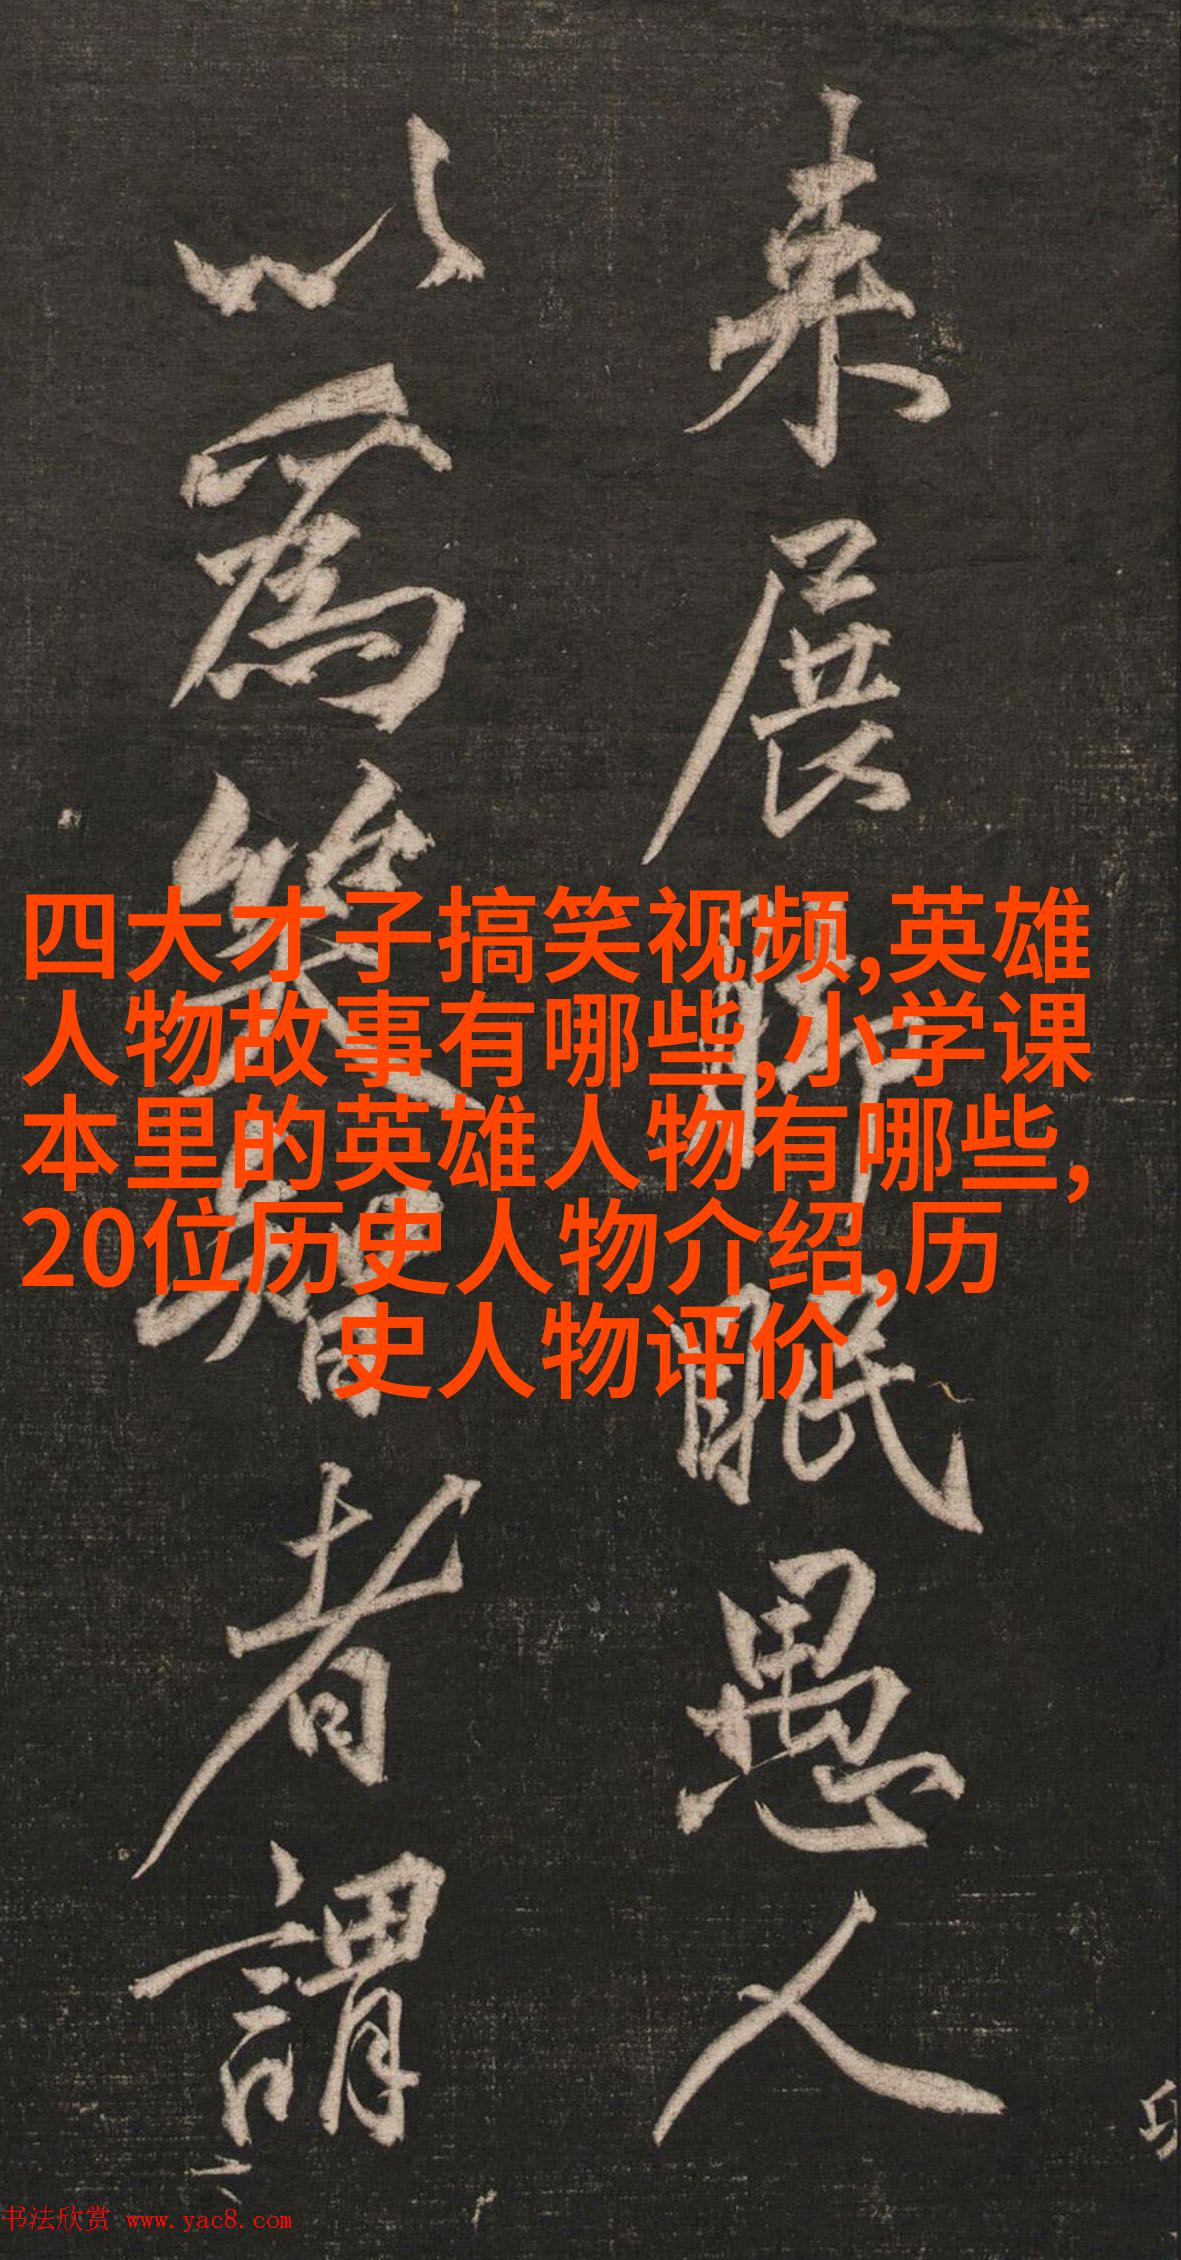 来展脚眠愚人
以為笑智者謂
四大才子搞笑视频,英雄
人物故事有哪些,小学课
本里的英雄人物有哪些,
20位历史人物介绍,历
史人物评价
书法欣赏 www.yac8.com